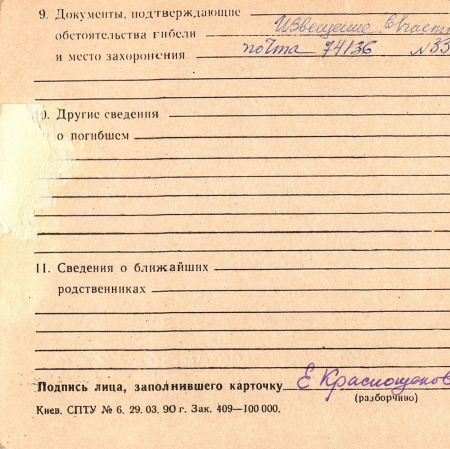 9. Документы, подтверждающие
обстоятельства гибели Извещение
и место захоронения почта 74136 №33
10. Другие сведения
о погибшем
11. Сведения о ближайших
родственниках
Подпись лица, заполнившего карточку Е Краснощеков
(разборчиво)
Киев. СПТУ № 6. 29. 03. 90 г. Зак. 409—100 000.